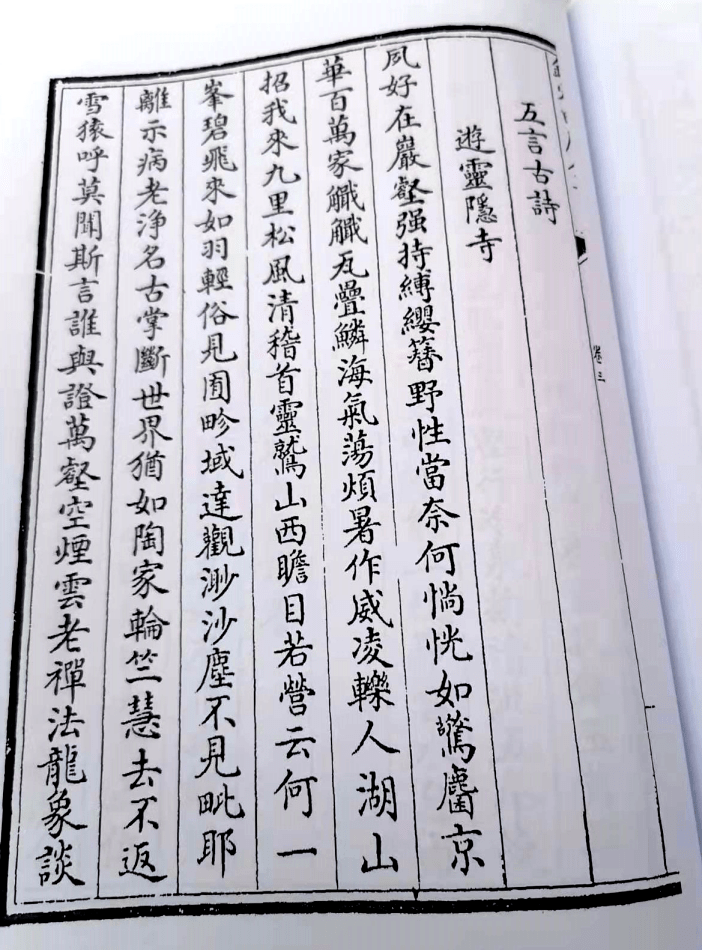 卷三
五言古詩
遊靈隱寺
夙好在巖壑强持縛纓簪野性當奈何惝怳如驚麕京
華百萬家觵觵瓦疊鱗海氣蕩煩暑作威凌轢人湖山
招我來九里松風清稽首靈鷲山西瞻目若營云何一
峯碧飛來如羽輕俗見囿畛域達觀渺沙塵不見毗耶
離示病老淨名古掌斷世界猶如陶家輪竺慧去不返
雪猿呼莫聞斯言誰與證萬壑空煙雲老禪法龍象談